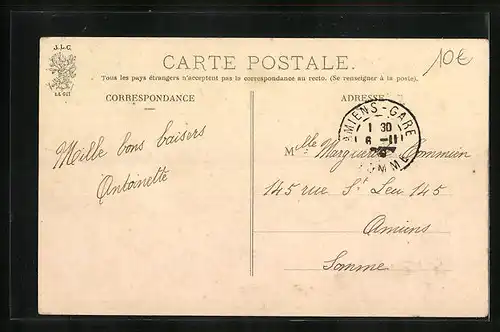 J.L.C.
LE GUI
10€
CARTE POSTALE.
Tous les pays étrangers n'acceptent pas la correspondance au recto. (Se renseigner à la poste).
CORRESPONDANCE
ADRESSE
AMIENS-GARE
1 30
6 -11
SOMME
Mille bons baisers
Antoinette
Mlle Marguerite Commien
145 rue St Leu 145
Amiens
Somme